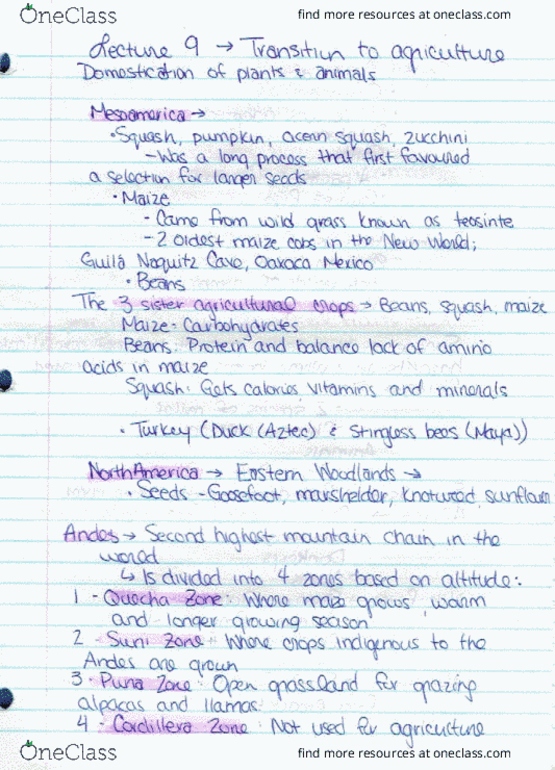 OneClass
find more resources at oneclass.com
Lecture 9 → Transition to agriculture
Domestication of plants & animals
Mesoamerica →
• Squash, pumpkin, acorn squash, zucchini
- Was a long process that first favoured
a selection for larger seeds
• Maize
- Came from wild grass known as teosinte
- 2 oldest maize cobs in the New World;
Guilá Naquitz Cave, Oaxaca Mexico
• Beans
The 3 sister agricultural crops → Beans, squash, maize
Maize: Carbohydrates
Beans: Protein and balance lack of amino
acids in maize
Squash: Gets calories, vitamins and minerals
• Turkey (Duck (Aztec) & Stingless bees (Maya))
North America → Eastern Woodlands →
• Seeds - Goosefoot, marshelder, knotweed, sunflower
Andes → Second highest mountain chain in the
world
↳ Is divided into 4 zones based on altitude:
1 - Quecha Zone: Where maize grows, warm
and longer growing season
2 - Suni Zone: Where crops indigenous to the
Andes are grown
3 - Puna Zone: Open grassland for grazing
alpacas and llamas
4 - Cordillera Zone: Not used for agriculture
OneClass
find more resources at oneclass.com